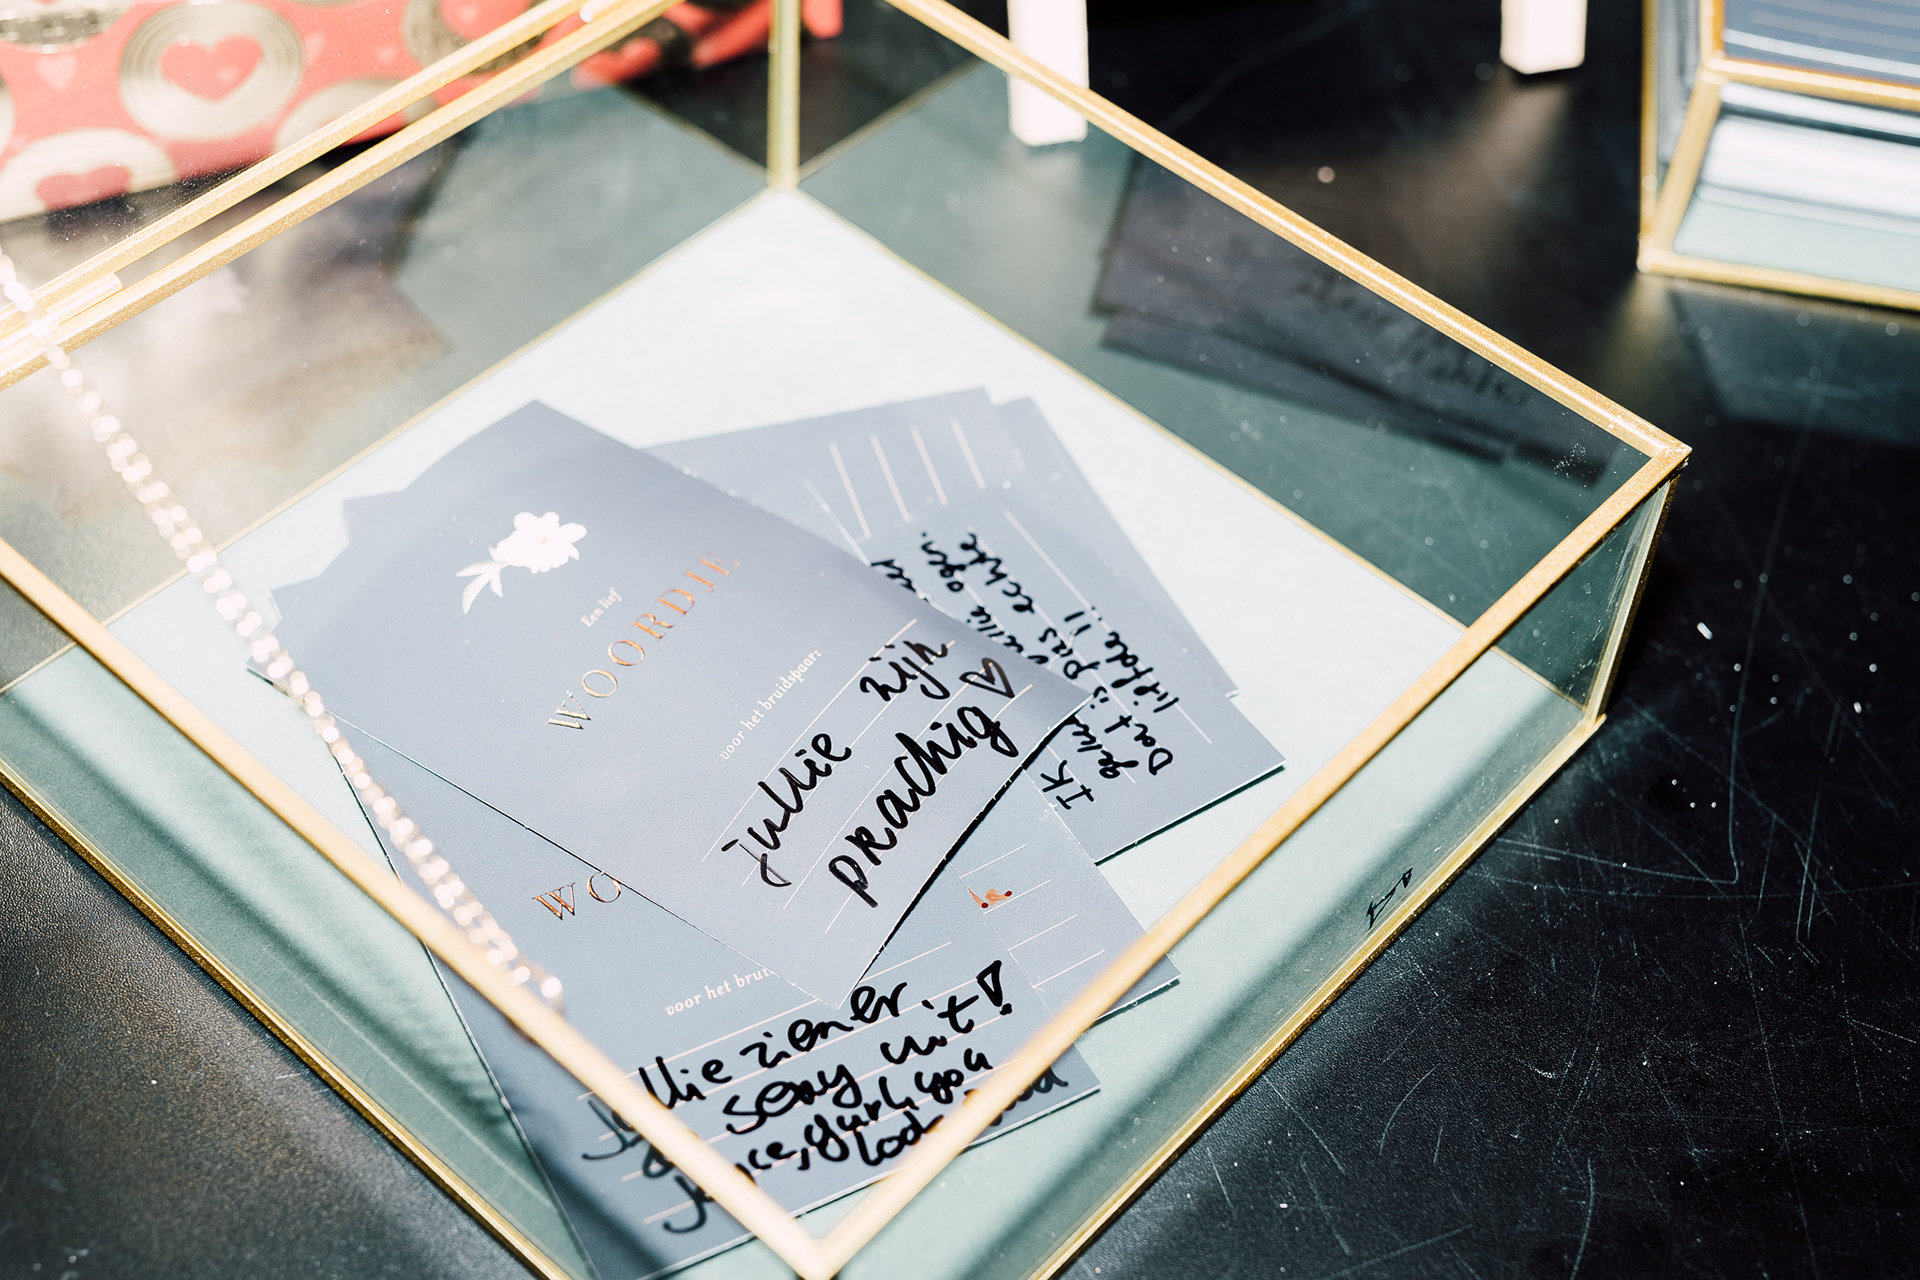 Een lief
WOORDJE
voor het bruidspaar:
jullie zijn
prachtig ♡
ogen.
Ik
Dat is pas echte
liefde !!
WO
voor het brui
jullie zien er
sexy uit!
Joyce, gurl, you
look good